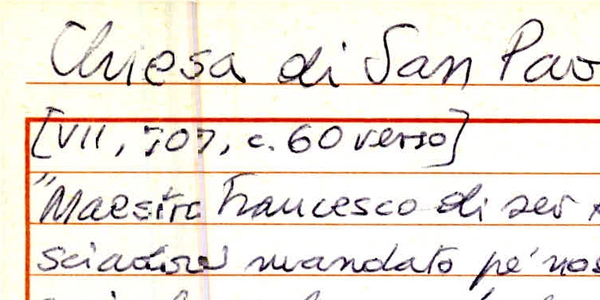 Chiesa di San Pao
[VII, 707, c. 60 verso]
"Maestro Francesco di ser
sciadore mandato pe' nos